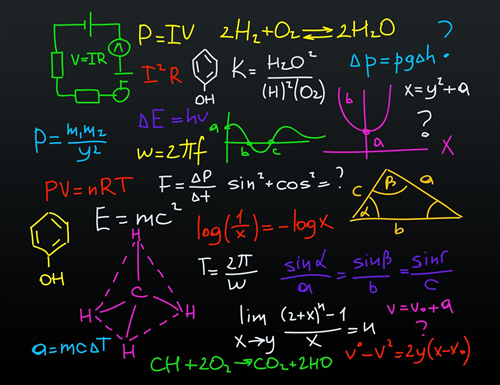 P=IV
2H₂+O₂⇌2H₂O
?
V=IR
I²R
OH
K=H₂O²/(H)²(O₂)
Δp=pgΔh
x=y²+a
?
b
a
X
ΔE=hν
a
b
c
P=m₁m₂/y²
w=2πf
PV=nRT
F=ΔP/Δt
sin²+cos²=?
C
β
a
α
b
E=mc²
log(1/x)=-logx
OH
H
C
H
H
H
T=2π/w
sinα/a=sinβ/b=sinr/c
lim x→y (2+x)ⁿ-1/x=n
v=v₀+a
?
a=mcΔT
CH+2O₂→CO₂+2HO
v°-v²=2y(x-x₀)